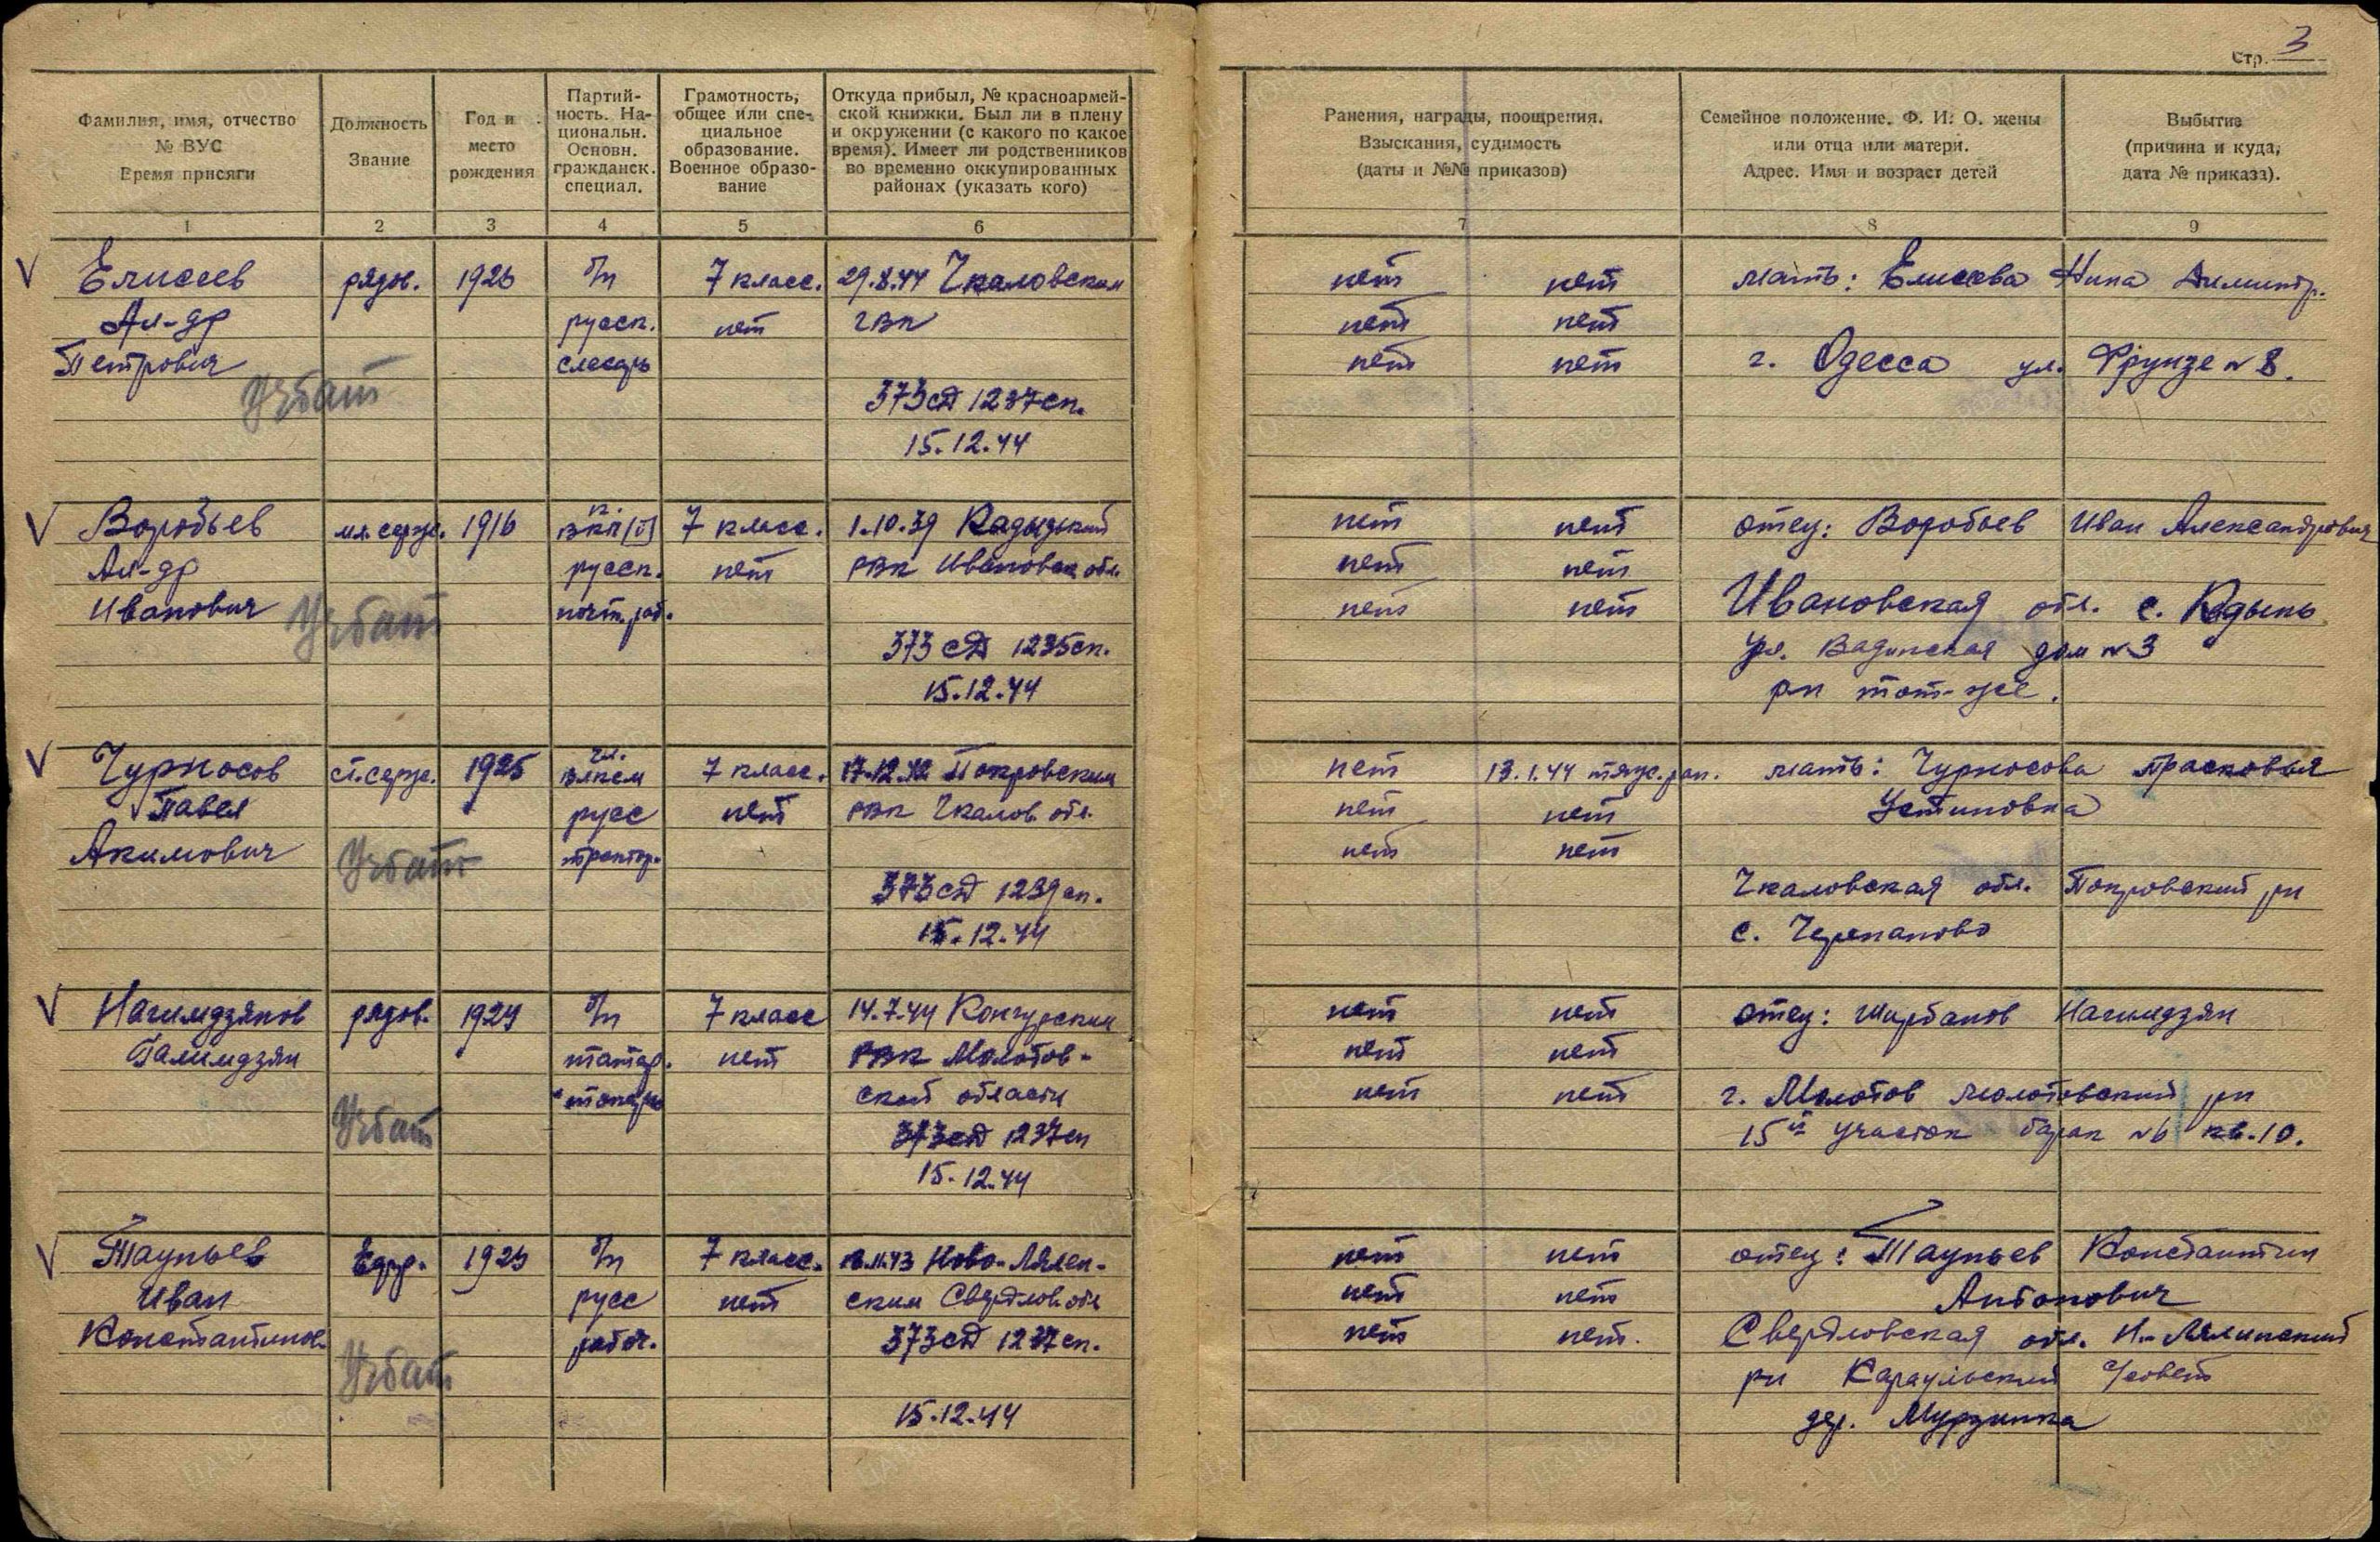 Стр. 3
Фамилия, имя, отчество
№ ВУС
Время присяги
Должность
Звание
Год и
место
рождения
Партий-
ность. На-
циональн.
Основн.
гражданск.
специал.
Грамотность,
общее или спе-
циальное
образование.
Военное образо-
вание
Откуда прибыл, № красноармей-
ской книжки. Был ли в плену
и окружении (с какого по какое
время). Имеет ли родственников
во временно оккупированных
районах (указать кого)
Ранения, награды, поощрения.
Взыскания, судимость
(даты и №№ приказов)
Семейное положение. Ф. И. О. жены
или отца или матери.
Адрес. Имя и возраст детей
Выбытие
(причина и куда,
дата № приказа).
1 2 3 4 5 6 7 8 9
V Елисеев рядов. 1926 б/п 7 класс. 29.8.44 Чкаловским нет нет мать: Елисева Нина Димитр.
Ал-др русск. нет ГВК нет нет
Петрович слесарь нет нет г. Одесса ул. Фрунзе №8.
Учбат 373 сд 1237 сп.
15.12.44
V Воробьев мл. серж. 1916 к. ВКП(б) 7 класс. 1.10.39 Кадыйский нет нет отец: Воробьев Иван Александрович
Ал-др русск. нет РВК Ивановск обл. нет нет
Иванович Учбат почт. раб. нет нет Ивановская обл. с. Кадыкь
373 сд 1235 сп. ул. дом №3
15.12.44 рн тот-же.
V Чурносов ст. серж. 1925 чл. ВЛКСМ 7 класс. 17.12.42 Покровским нет 13.1.44 тяж. ран. мать: Чурносова Прасковья
Павел русс нет РВК Чкалов. обл. нет нет Устиновна
Акимович Учбат трактор. нет нет
373 сд 1239 сп. Чкаловская обл. Покровский рн
15.12.44 с. Черепаново
V Нагимдзянов рядов. 1924 б/п 7 класс 14.7.44 Конгурским нет нет отец: Шарбанов Нагимдзян
Галимдзян татар. нет РВК Молотов- нет нет
токарь ской области нет нет г. Молотов Молотовский рн
Учбат 373 сд 1237 сп 15й участок барак №6 кв. 10.
15.12.44
V Таупьев Ефр. 1923 б/п 7 класс. 18.11.43 Ново-Лялен- нет нет отец: Таупьев Константин
Иван русс нет ским Свердлов. обл нет нет Антонович
Константинов. рабоч. 373 сд 1237 сп. нет нет. Свердловская обл. Н-Лялинский
Учбат рн Караульский с/совет
15.12.44 дер. Мурзинка